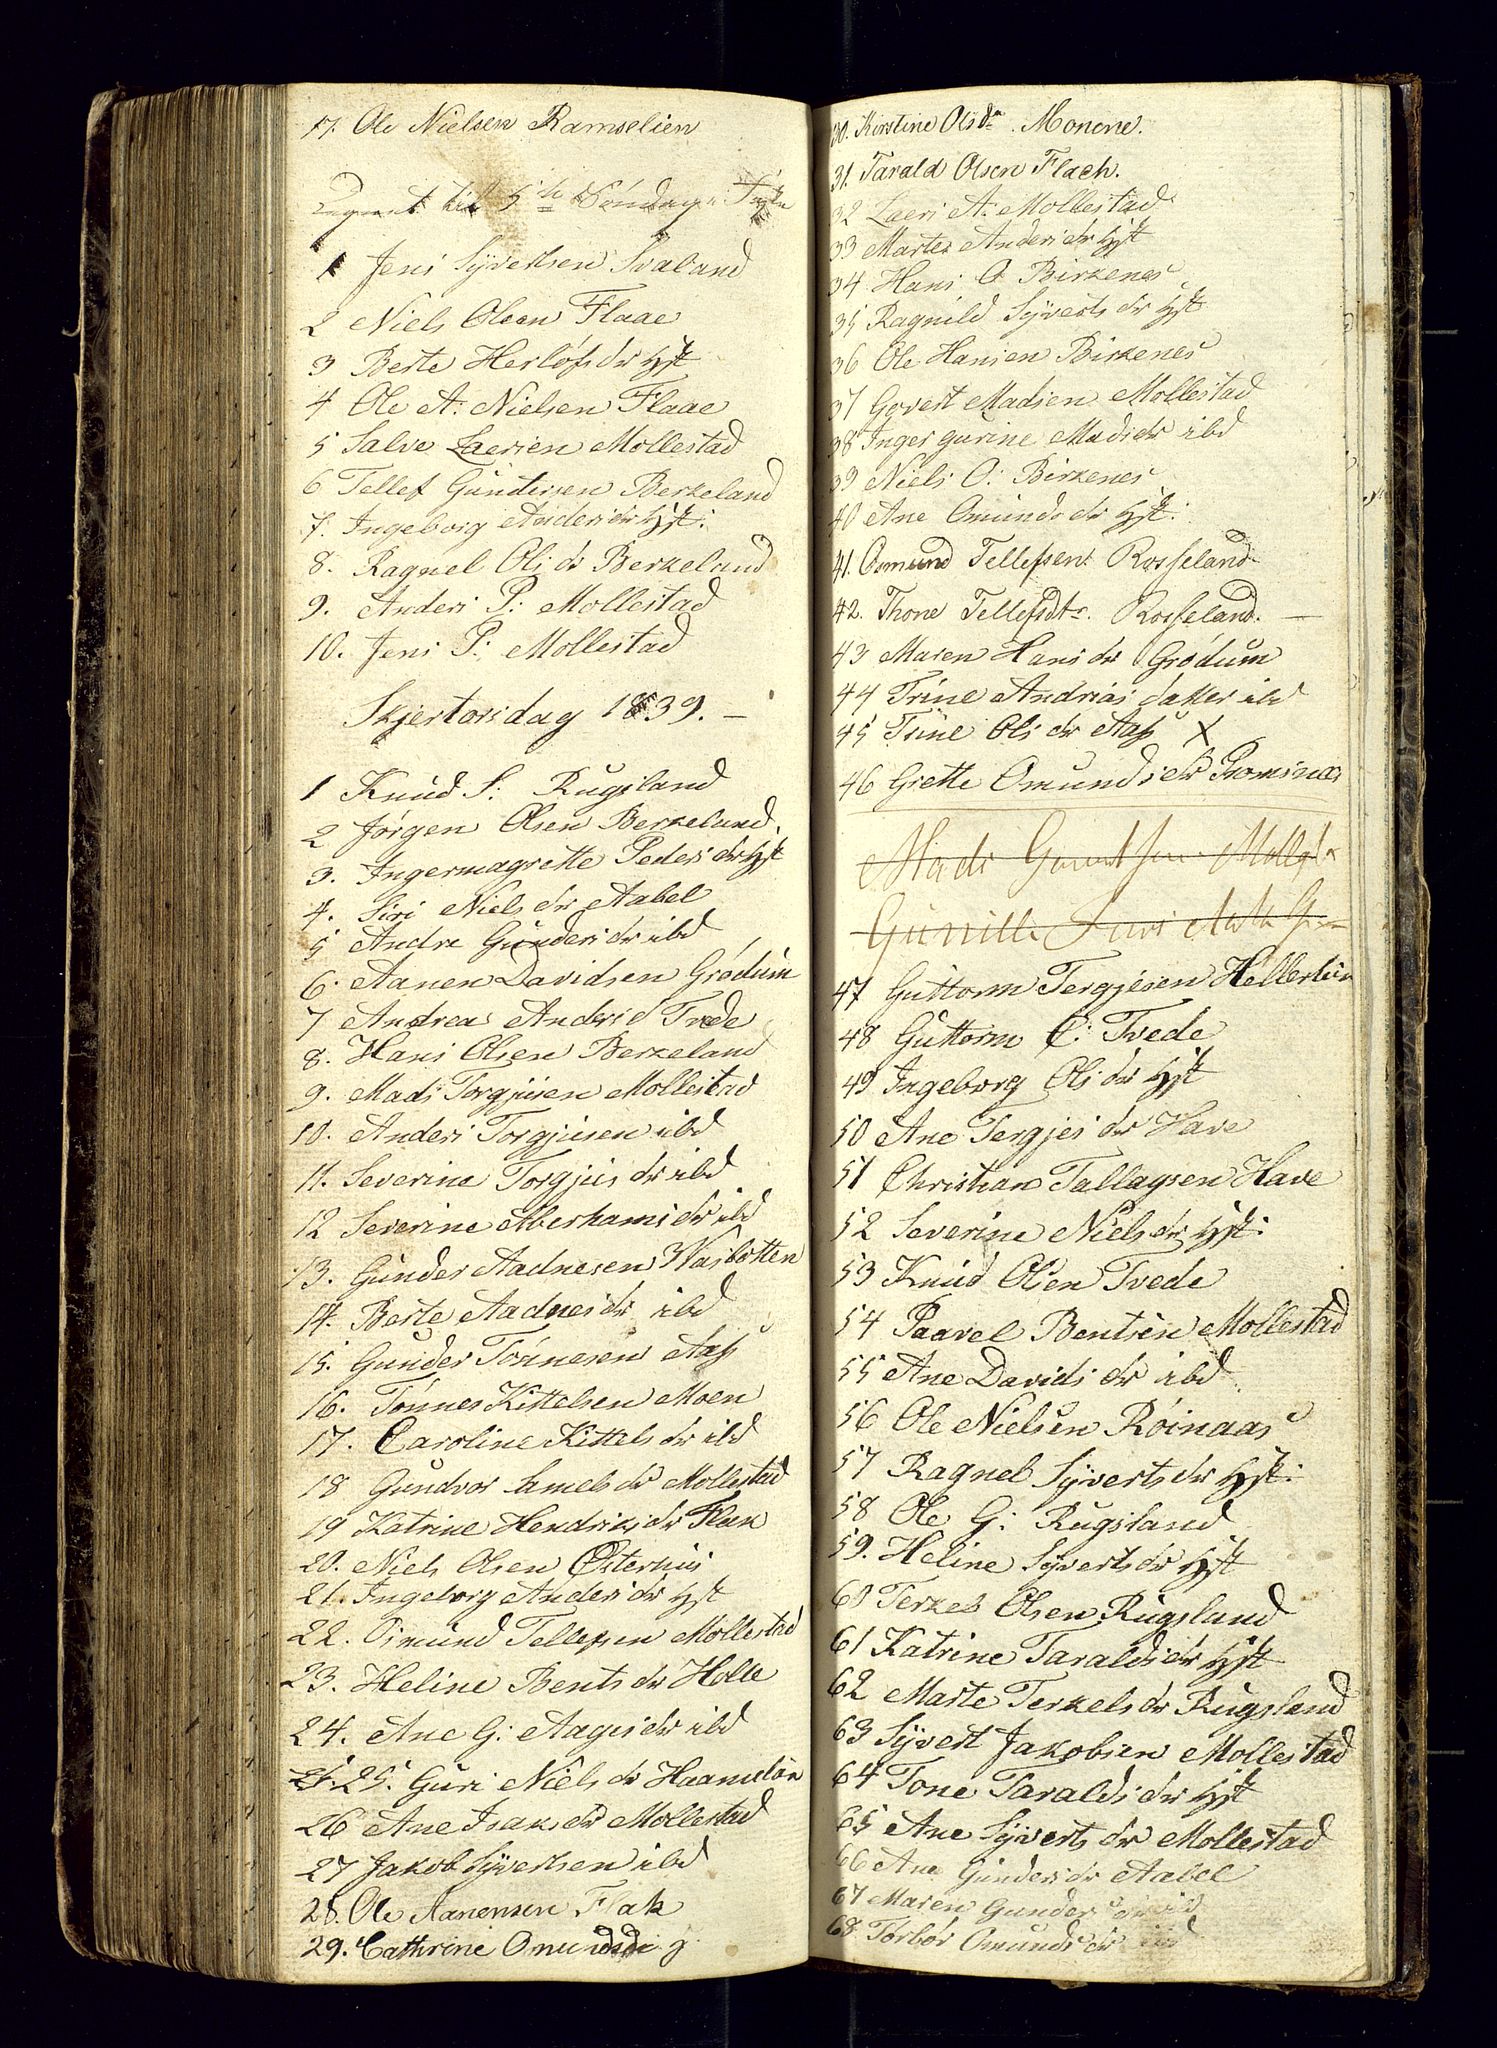 17. Ole Nielsen Ramselien
til 5te Søndag i Faste
1 Jens Syvertsen Svaland
2 Niels Olsen Flaae
3 Berte Herlofs dr hst
4 Ole A. Nielsen Flaae
5 Salve Laersen Mollestad
6 Tellef Gundersen Berkeland
7. Ingeborg Anders dr hst:
8. Ragnel Ols dr Berkeland
9. Anders P: Mollestad
10. Jens P: Mollestad
Skjertorsdag 1839. —
1 Knud S: Rugsland
2 Jørgen Olsen Berkeland.
3. Ingermagrette Peders dr hst
4. Siri Niels dr Aabel
5 Andre Gunders dr ibd
6. Aanen Davidsen Grødum
7 Andreas Andrs d Tvede
8. Hans Olsen Berkeland
9. Mads Torgjusen Mollestad
10. Anders Torgjusen ibd
11. Severine Torgjus dr ibd
12 Severine Aberhams dr ibd
13. Gunder Aadnesen Wasbotten
14. Berte Aadnes dr ibd
15. Gunder Tønnesen Aas
16. Tønnes Kittelsen Moen
17. Caroline Kittels dr ibd
18 Gundvor Samels dr Mollestad
19 Katrine Hendriks dr Flaa
20. Niels Olsen Østerhus
21. Ingeborg Anders dr hst
22. Osmund Tellefsen Mollestad
23. Heline Bents dr Holle
24. Ane G: Aages dr ibd
25. Guri Niels dr
26 Ane Isaks dr Mollestad
27 Jakob Syvertsen ibd
28. Ole Aanensen Flak
29. Cathrine
30. Kirstine Olsdr. Monene.
31. Tarald Olsen Flach.
32 Laers A. Mollestad
33 Marte Anders dr hst
34 Hans O Birkenes
35 Ragnild Syverts dr hst
36 Ole Hansen Birkenes
37 Govert Madsen Mollestad
38 Inger gurine Mads dr ibd
39 Niels O: Birkenes
40 Ane Omunds dr hst:
41. Osmund Tellefsen Rosseland
42. Thone Tellefsdtr. Rosseland. —
43 Maren Hans dr Grødum
44 Trine Andrias datter ibd
45 Trine Ols dr Aas X
46 Grette Omunds dr
Mads
Gunnild
47 Guttorm Tergjesen
48 Guttorm C: Tvede
49 Ingeborg Ols dr hst
50 Ane Tergjes dr Have
51 Christian Tallagsen Have
52 Severine Niels dr hst:
53 Knud Olsen Tvede
54 Paavel Bentsen Mollestad
55 Ane Davids dr ibd
56 Ole Nielsen Røinaas
57 Ragnel Syverts dr hst:
58 Ole G: Rugsland
59. Heline Syverts dr hst
60 Terkel Olsen Rugsland
61 Katrine Taralds dr hst
62 Marte Terkels dr Rugsland
63 Syvert Jakobsen Mollestad
64 Tone Taralds dr hst
65 Ane Syverts dr Mollestad
66 Ane Gunders dr Aabel
67 Maren Gunders dr ibd
68 Torbor Omunds dr ibd